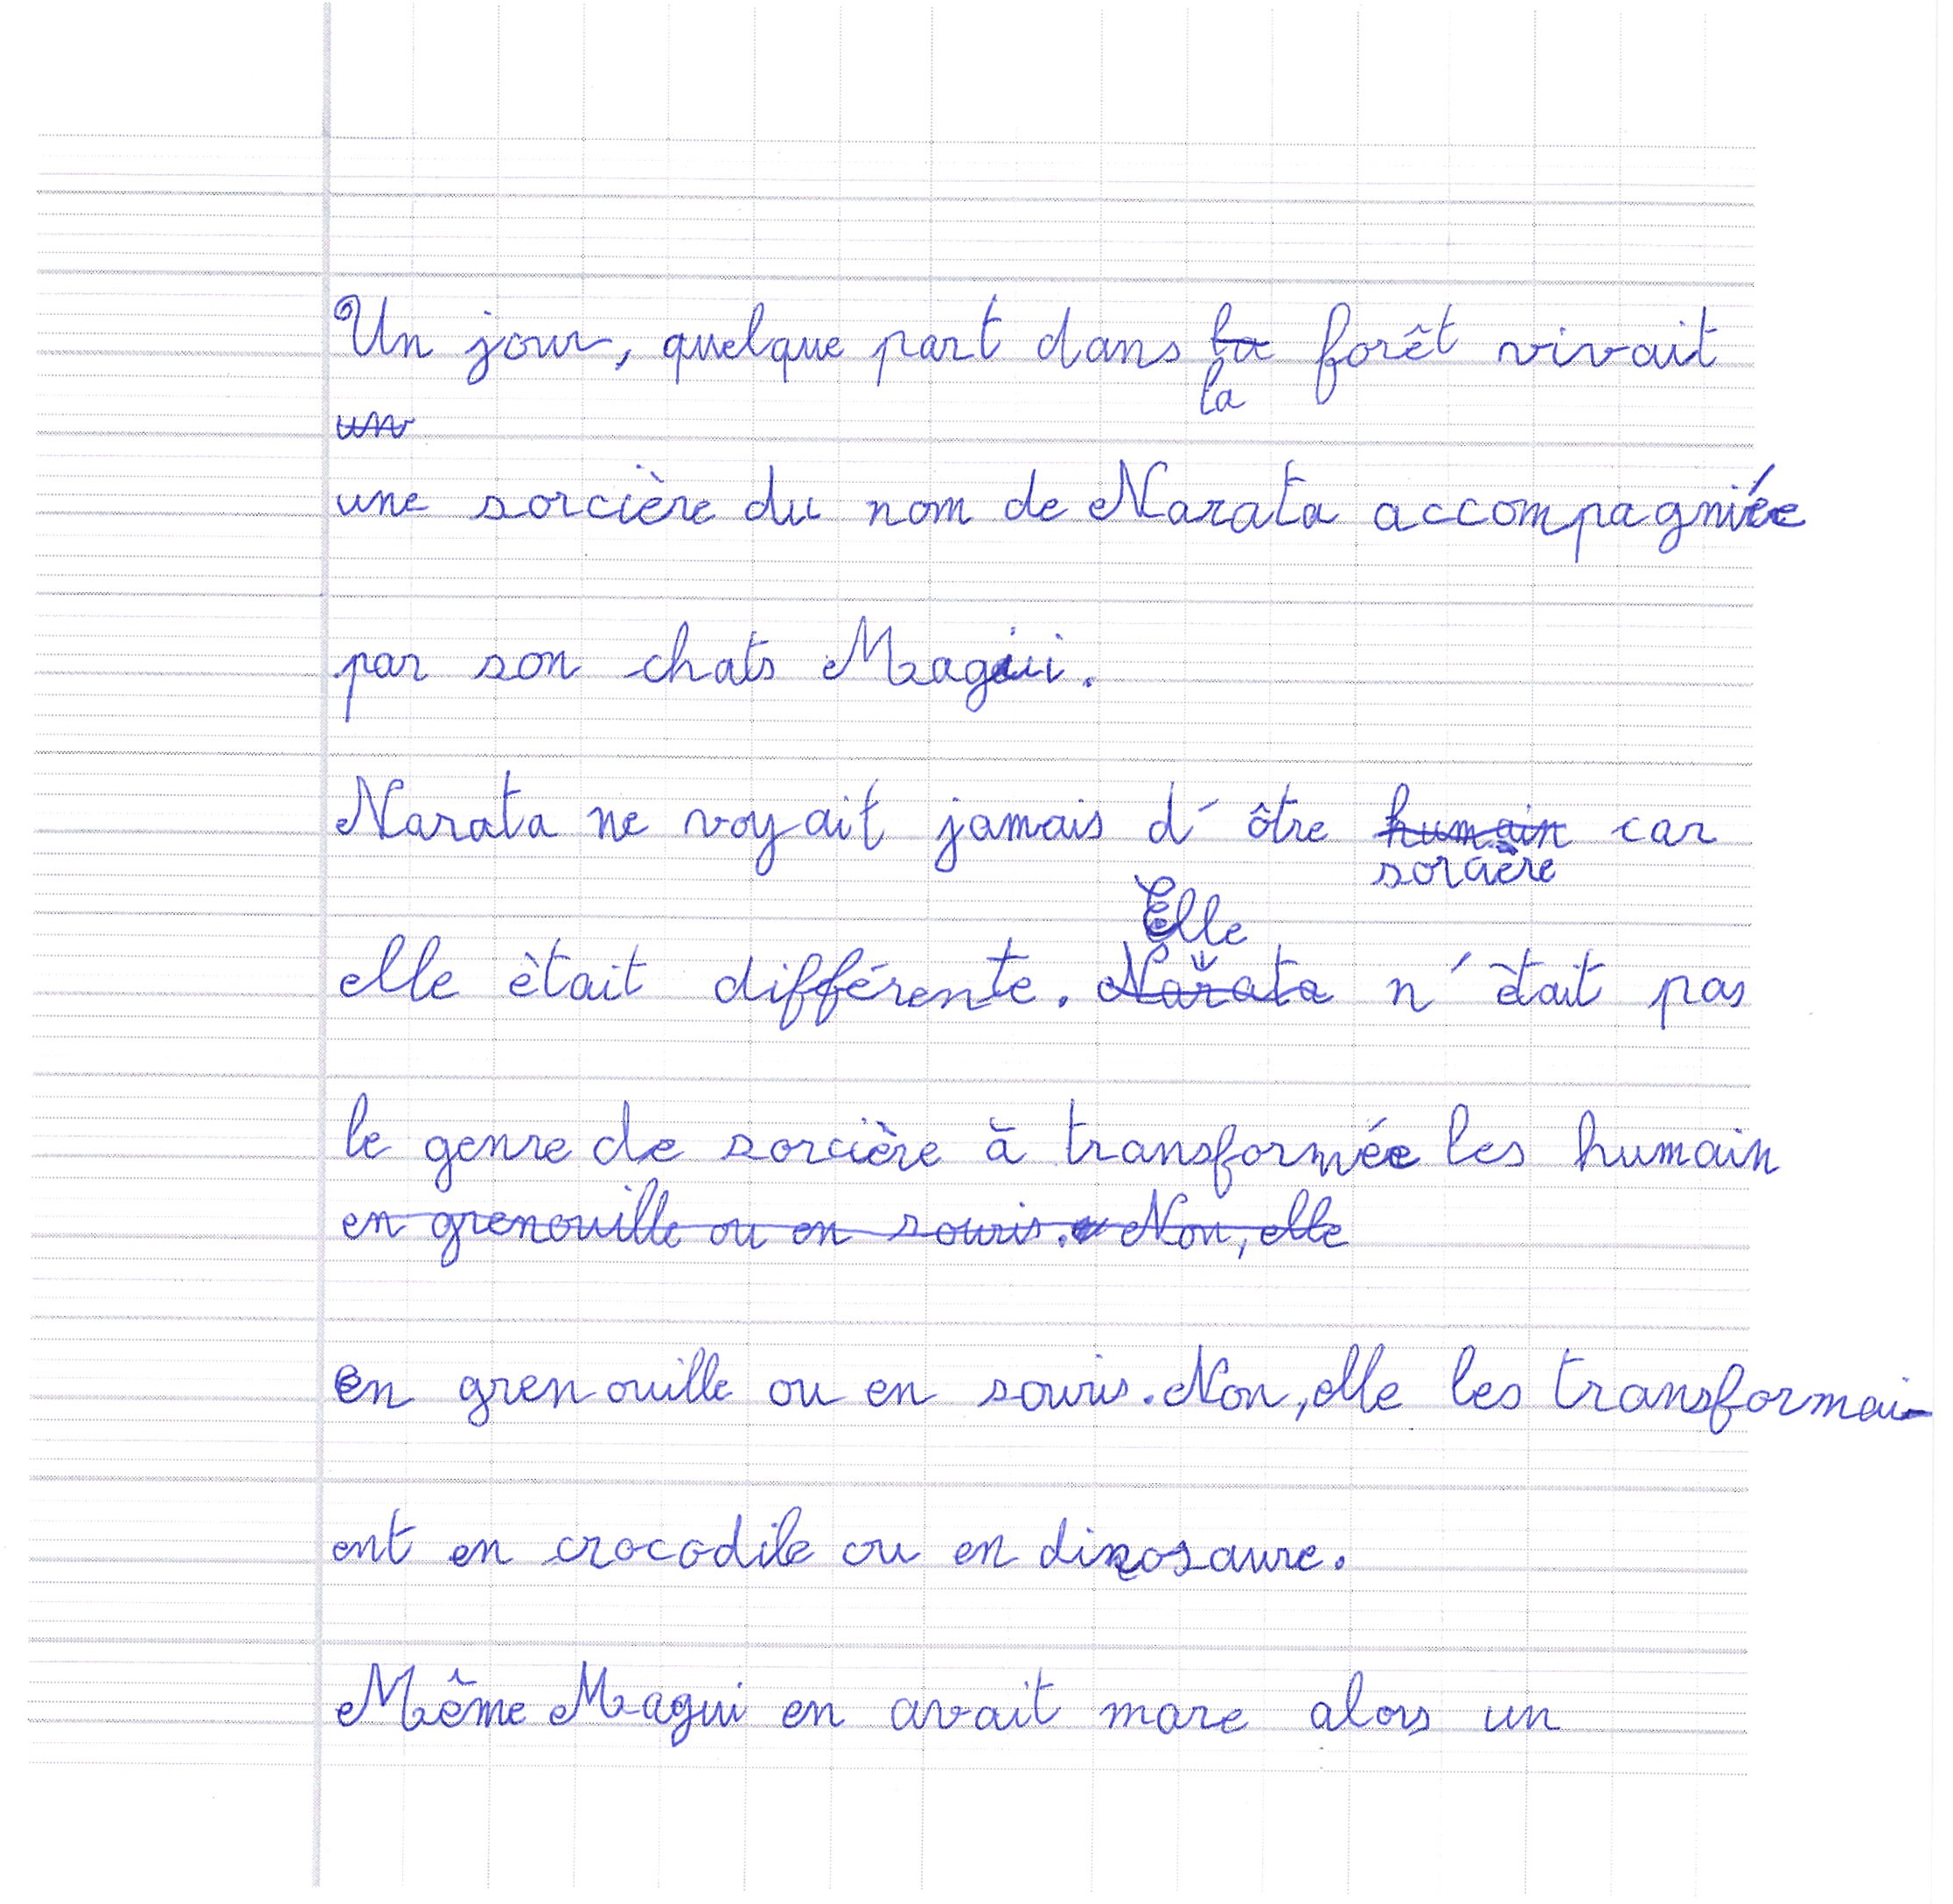 Un jour, quelque part dans la forêt vivait
la
un
une sorcière du nom de Narata accompagniée
par son chats Magui.
Narata ne voyait jamais d'ôtre humain car
sorcière
Elle
elle ètait différente. Narata n'ètait pas
le genre de sorcière à transformée les humain
en grenouille ou en souris. Non, elle
en grenouille ou en souris. Non, elle les transformai-
ent en crocodile ou en dinosaure.
Même Magui en avait mare alors un